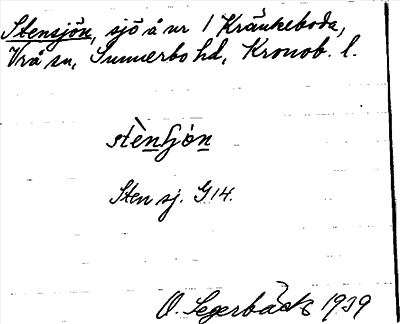 Stensjön, sjö å nr 1 Kränkeboda,
Vrå sn, Sunnerbo hd, Kronob. l.
stènʃjòn
Sten sj. G14.
O. Segerbäck 1939